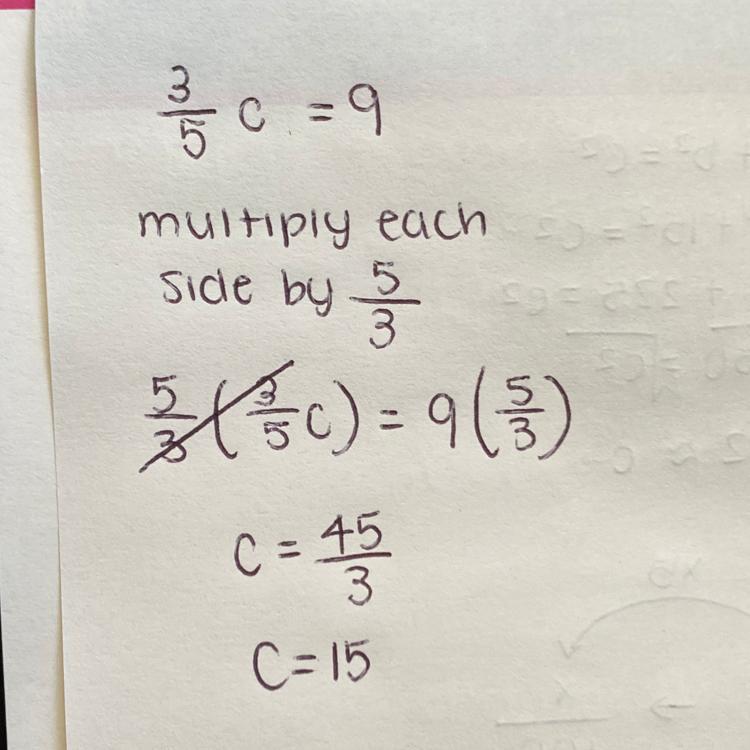 3/5 c = 9
multiply each
side by 5/3
5/3 (3/5 c) = 9 (5/3)
c = 45/3
c = 15